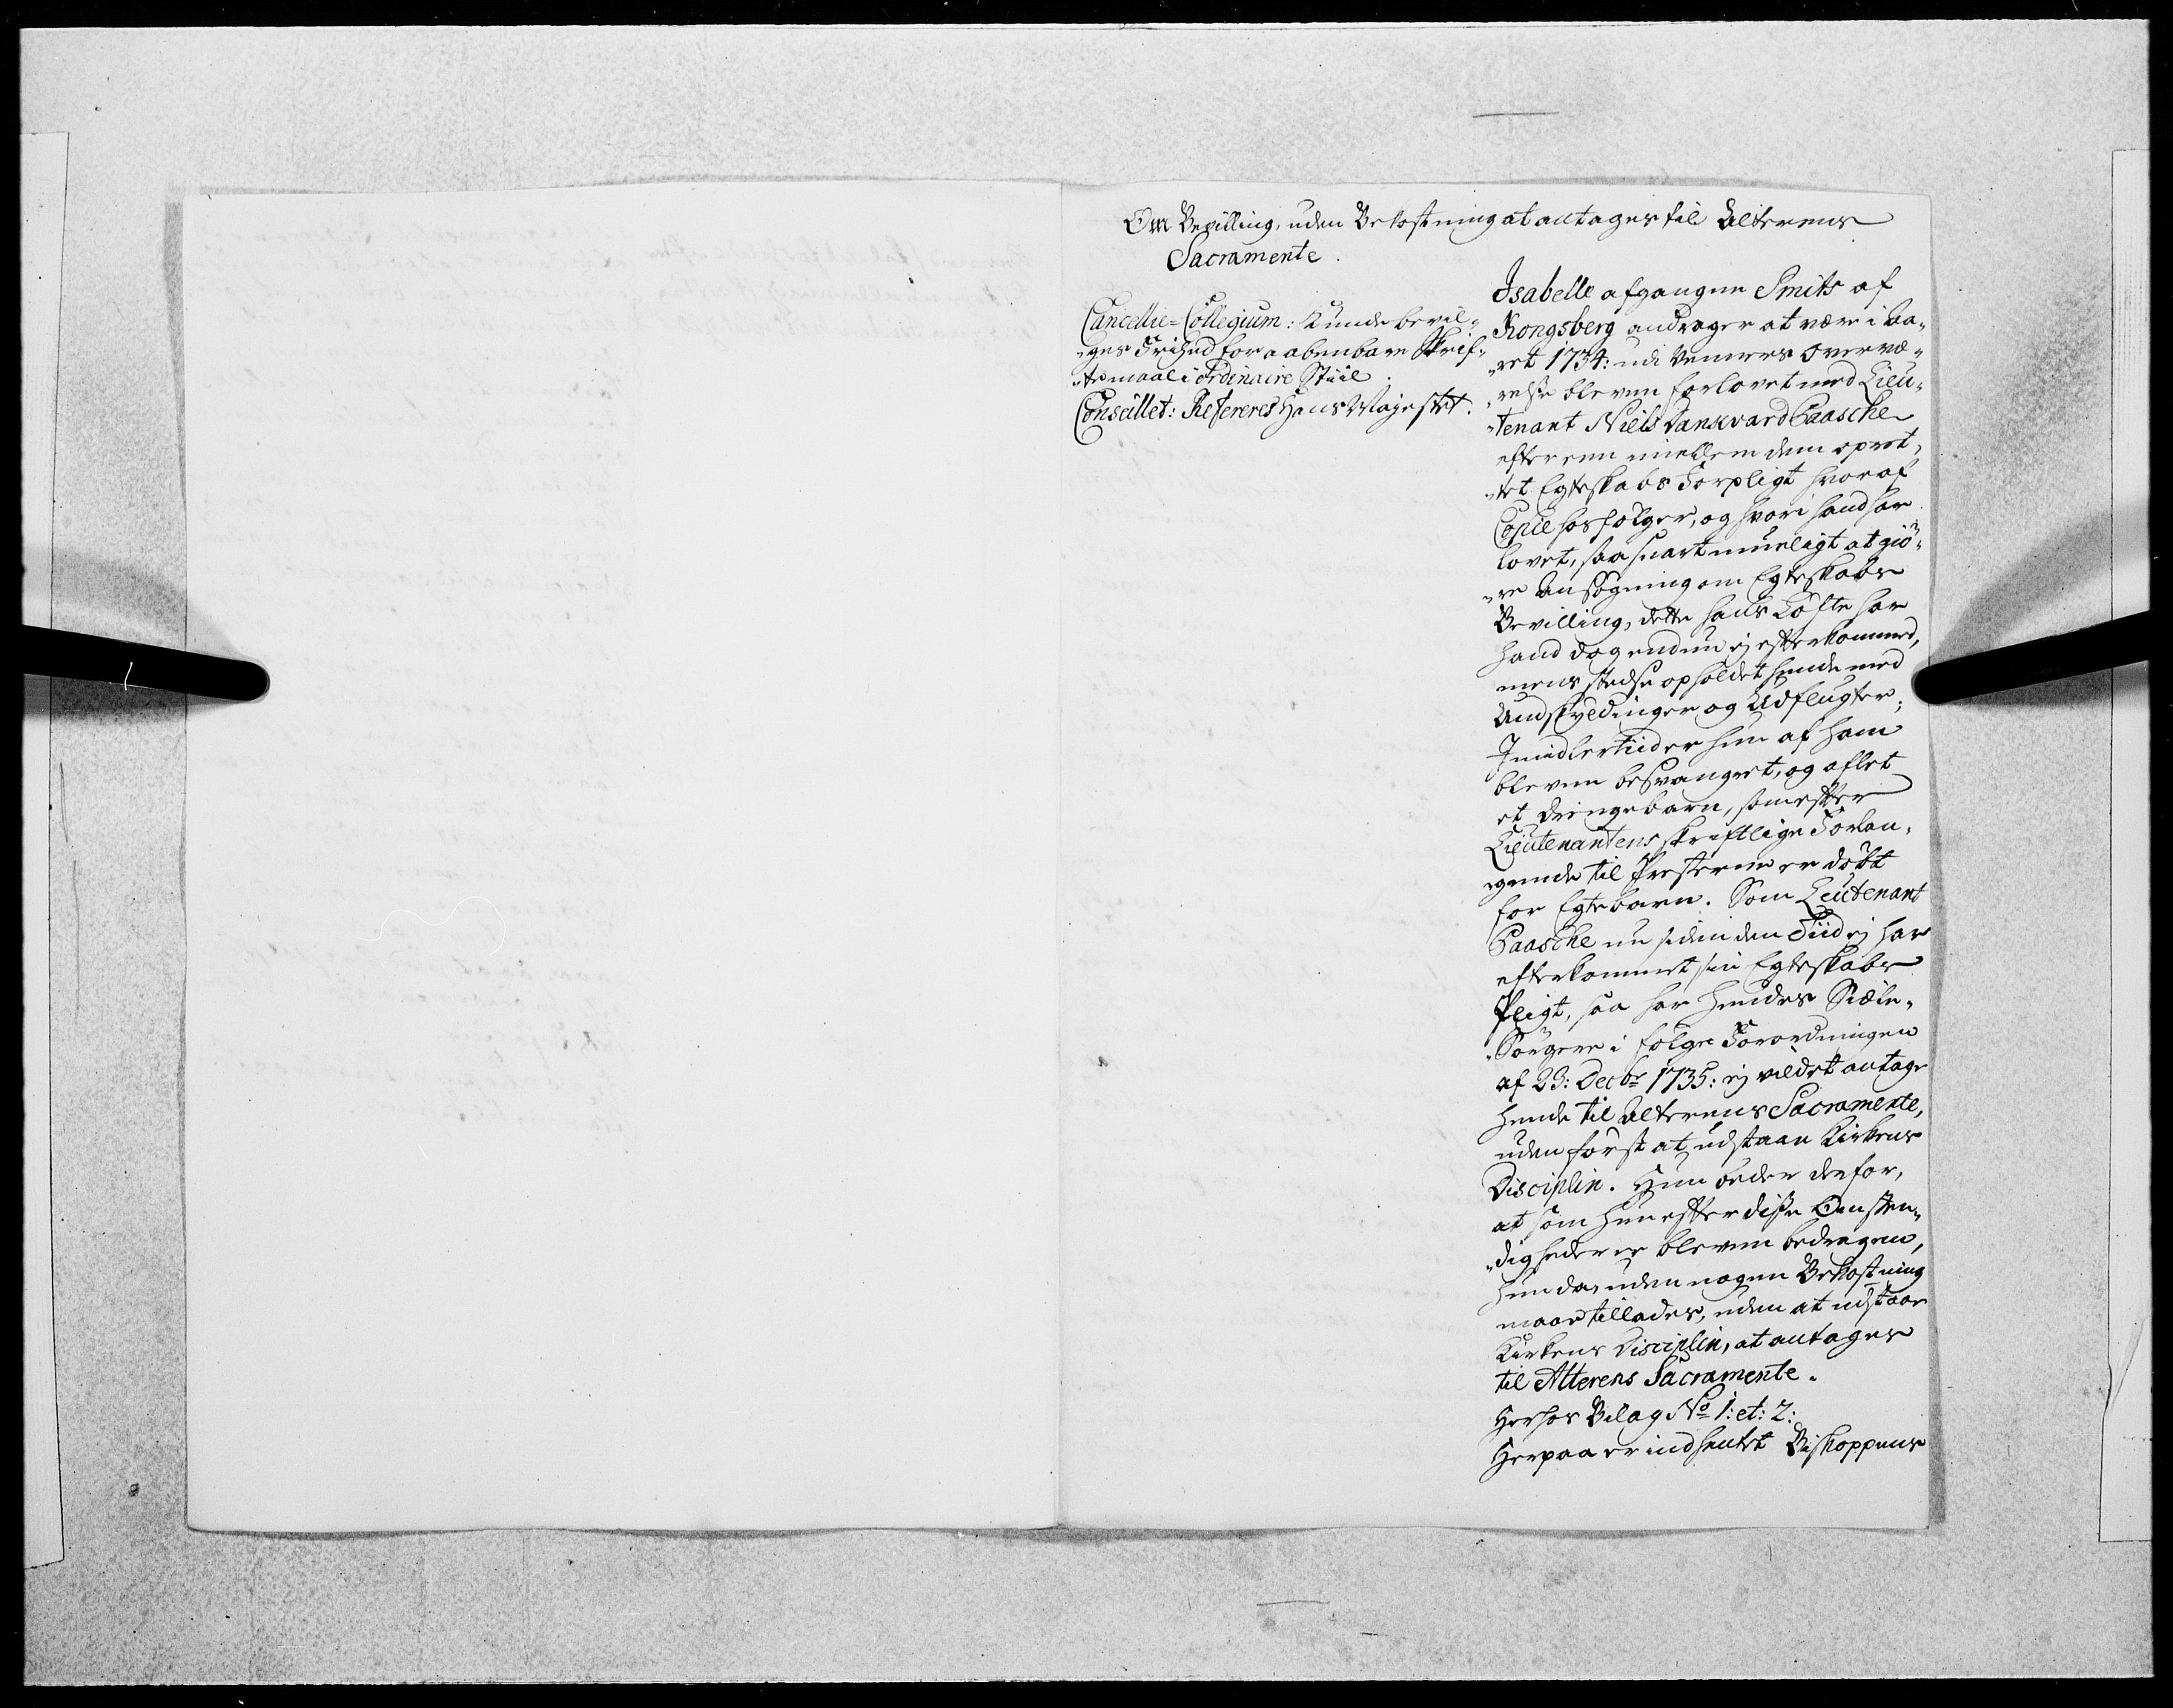 Om Bevilling, uden Bekostning at antages til Alterens
Sacramente.
Cancellie-Collegium: Kunde bevil-
"ges Frihed for aabenbare Skrif-
"temaal i ordinaire Stiil.
Conseillet: Refereres Hans Majestet.
Isabelle afgangne Smits af
Kongsberg andrager at være i Aa-
"ret 1734: udi Venners Overvæ-
"relse bleven forlovet med Lieu-
"tenant Niels Dankvard Paasche
efter een imellem dem opret-
"tet Egteskabs Forpligt hvoraf
Copie hosfølger, og hvori hand har
lovet, saa snart mueligt at giö-
"re Ansøgning om Egteskabs
Bevilling, dette hans Løfte har
hand dog endnu ej efterkommed,
mens stedse opholdet hende med
Undskyldinger og Udflugter;
Imidlertiid er hun af ham
bleven besvangret, og aflet
et Drengebarn, som efter
Lieutenantens skriftlige Forlan-
"gende til Presterne er døbt
for Egtebarn. Som Leutenant
Paasche nu siden den Tiid ej har
efterkommet sin Egteskabs
Pligt, saa har hendes Siæle-
"Sørgere i følge Forordningen
af 23: Decbr 1735: ej vildet antage
hende til Alterens Sacramente,
uden først at udstaae Kirkens
Disciplin. Hun beder derfor,
at som hun efter disse Omsten-
"digheder er bleven bedragen,
hun da, uden nogen Bekostning
maae tillades, uden at udstaae
Kirkens Disciplin, at antages
til Alterens Sacramente.
Herhos Bilag No 1: et: 2:
Herpaa er indhentet Biskoppens